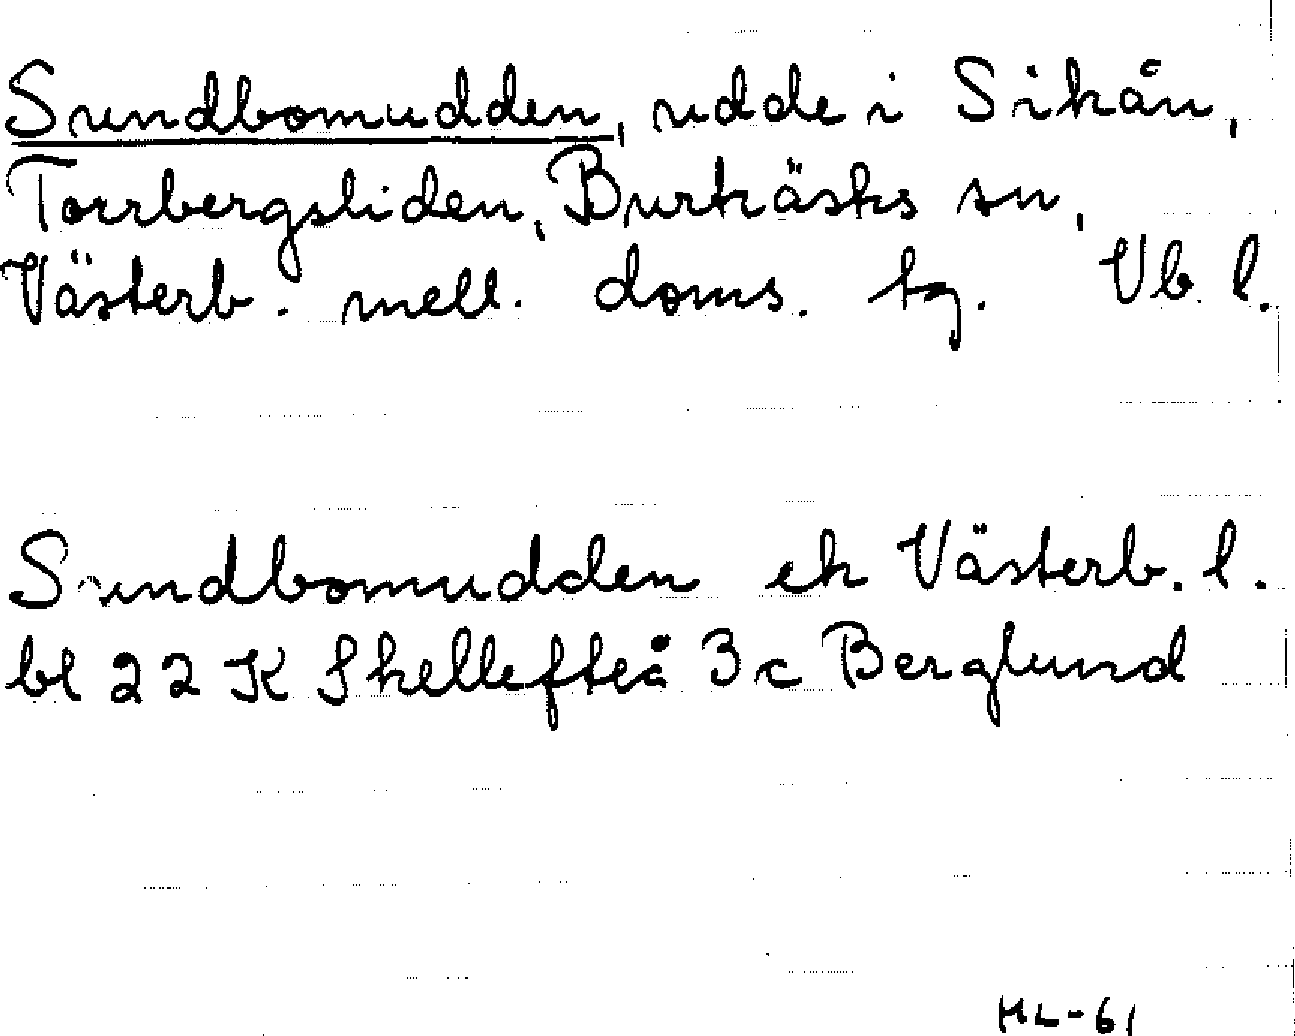 Sundbomudden, udde i Sikån,
Torrbergsliden, Burträsks sn,
Västerb. mell. doms. tg. Vb. l.
Sundbomudden ek Västerb. l.
bl 22 K Skellefteå 3 c Berglund
HL-61